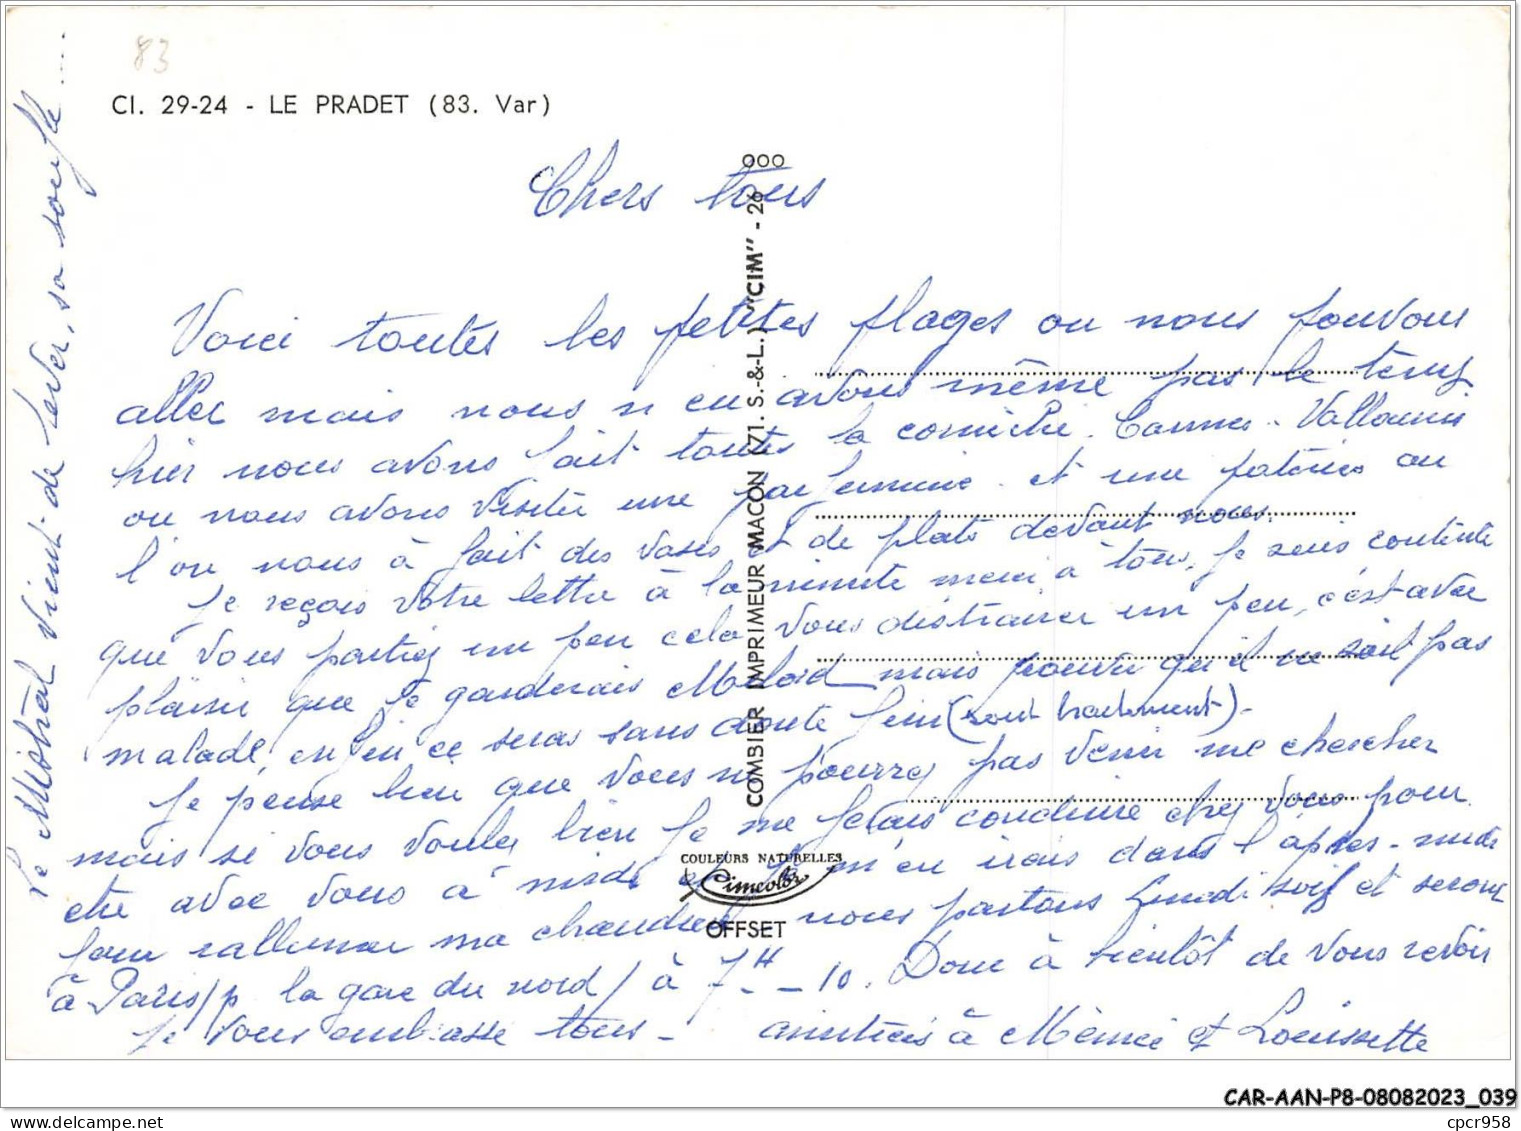 83
Cl. 29-24 - LE PRADET (83. Var)
Chers tous
Voici toutes les petites plages ou nous pouvons
aller mais nous n'en avons même pas le temps
hier nous avons fait toutes la corniche. Cannes - Vallauris
ou nous avons visiter une parfumerie et une poteries ou
l'on nous à fait des vases et de plats devant nous.
Je reçois votre lettre à la minute merci à tous, je suis contente
que vous partiez un peu cela vous distraira un peu, c'est avec
plaisir que je garderais Milord mais pourvu qu'il ne soit pas
malade, enfin ce seras sans doute fini (sont traitement) -
Je pense bien que vous ne pourrez pas venir me chercher
mais si vous voulez bien je me ferais conduire chez vous pour
etre avec vous à midi et je m'en irais dans l'après-midi
pour rallumer ma chaudière nous partons Lundi soir et serons
à Paris / p la gare du nord / à 7H - 10. Donc à bientôt de vous revoir
Je vous embrasse tous - amitiés à Mémée et Louissette
Le Mistral vient de lever, sa soufle ....
COMBIER IMPRIMEUR MACON (71. S.-&-L.) "CIM" - 26
COULEURS NATURELLES
Cimcolor
OFFSET
CAR-AAN-P8-08082023_039
cpcr958